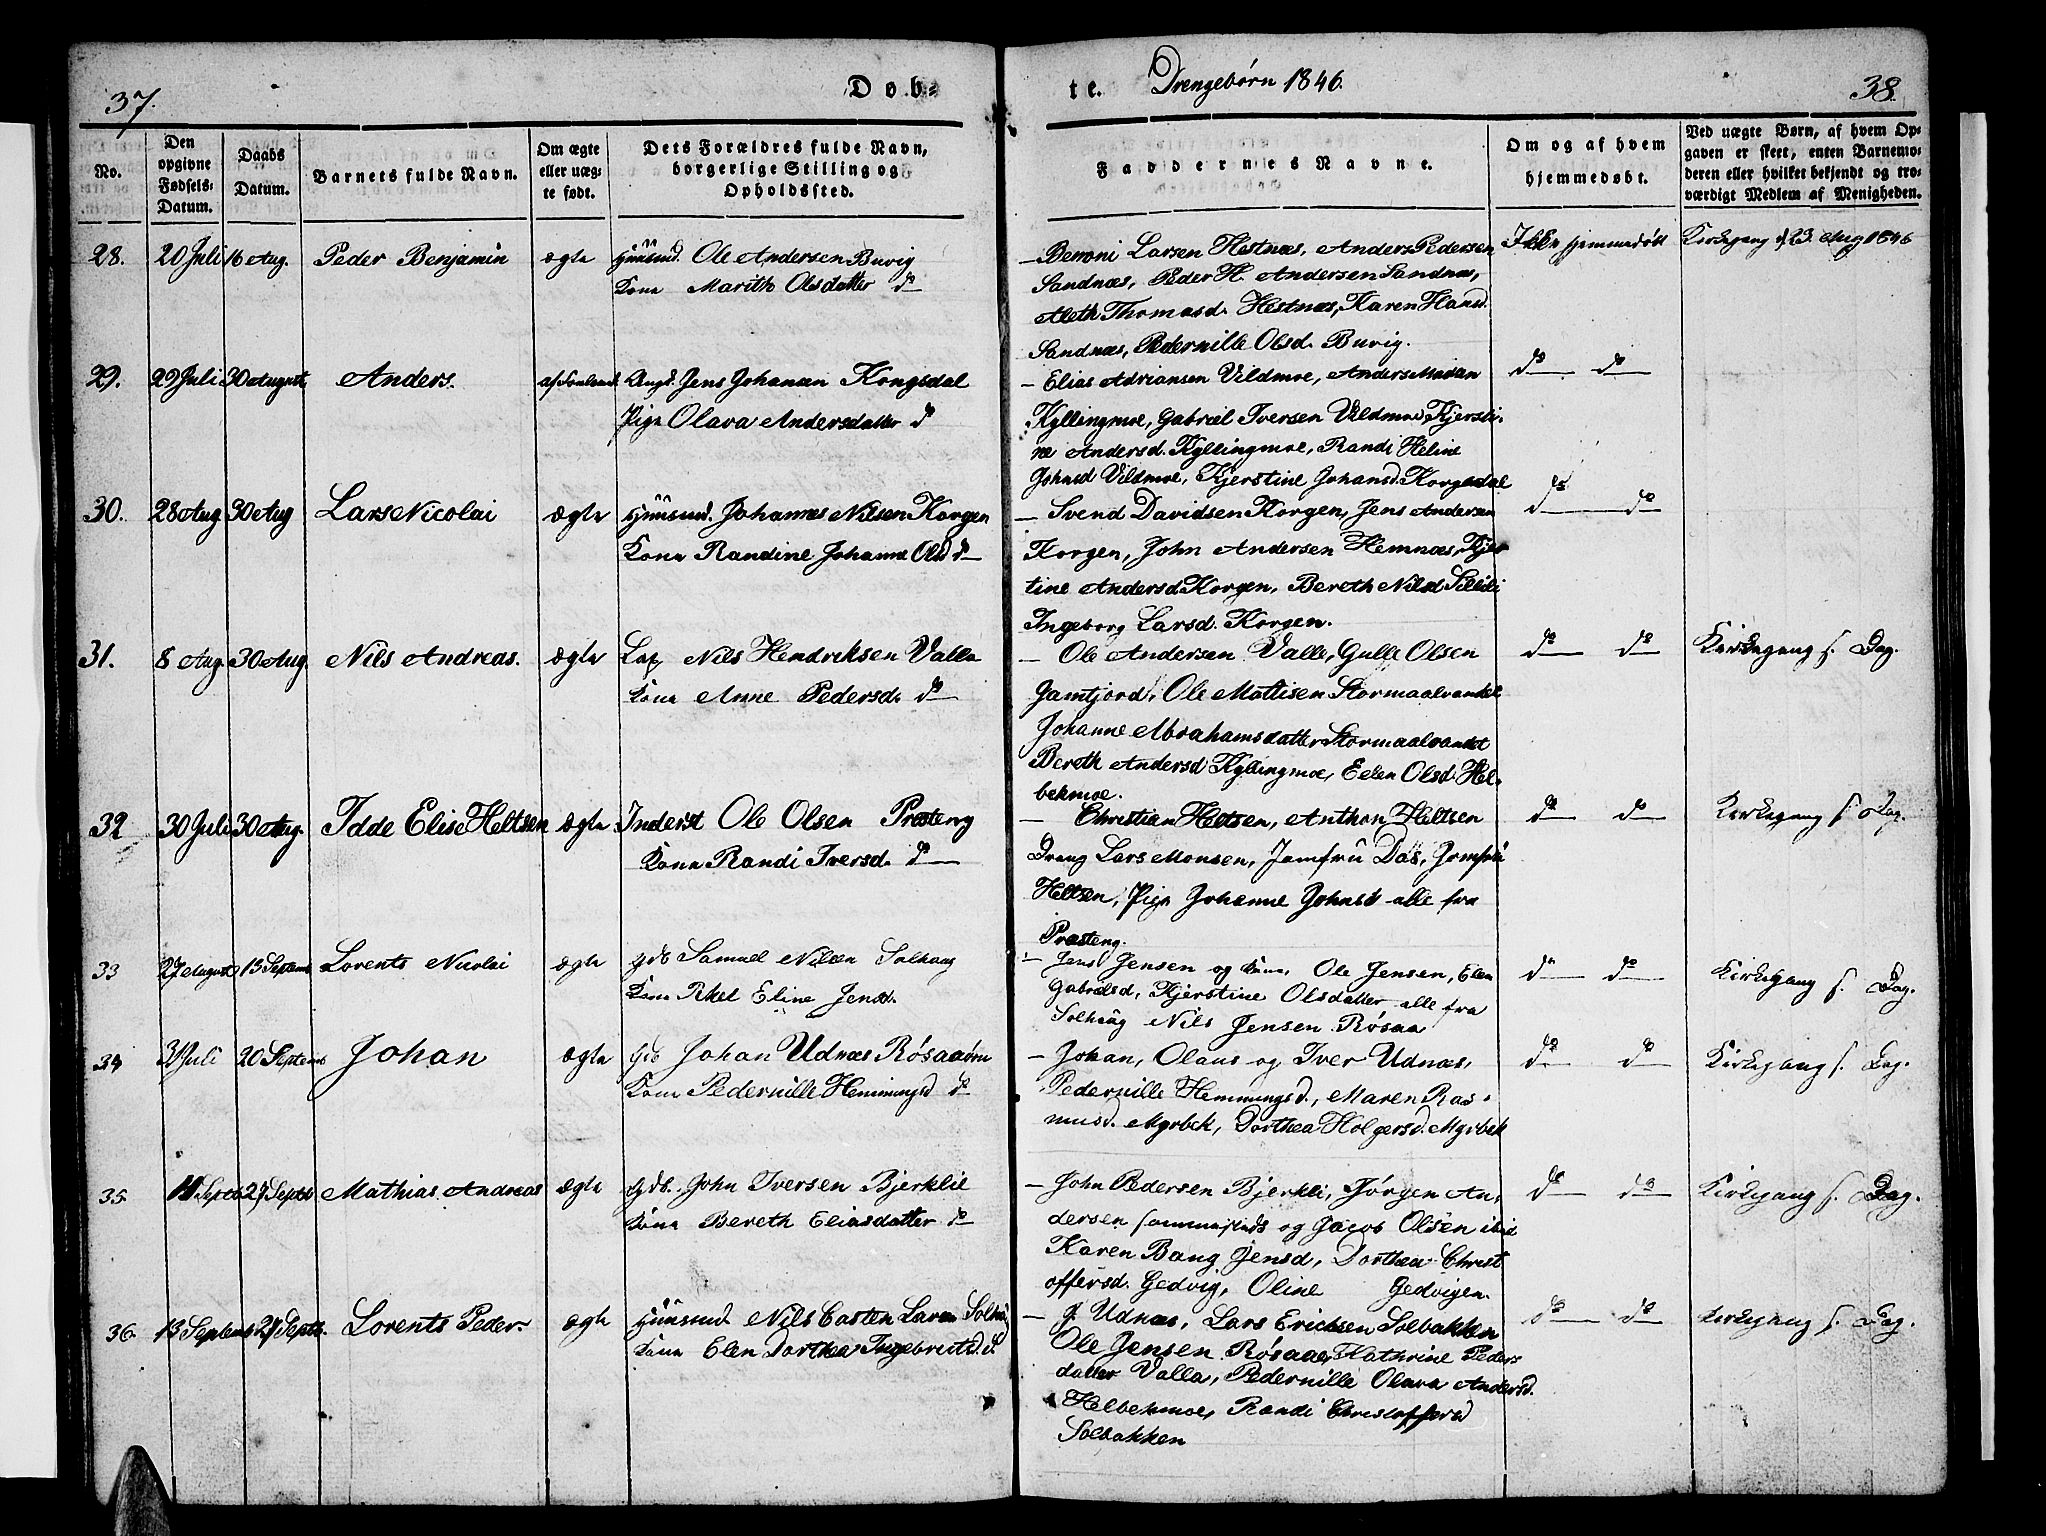 37.
Døb-
te.
Drengebørn 1846.
38.
No.
Den opgivne Fødsels-Datum.
Daabs Datum.
Barnets fulde Navn.
Om ægte eller uæg-te født.
Dets Forældres fulde Navn, borgerlige Stilling og Opholdssted.
Faddernes Navne.
Om og af hvem hjemmedøbt.
Ved uægte Børn, af hvem Op-gaven er skeet, enten Barnemo-deren eller hvilket bekjendt og tro-værdigt Medlem af Menigheden.
28. 20 Juli 16 Aug. Peder Benjamin ægte Huusmd. Ole Andersen Buvig
Kone Marith Olsdatter do
- Beroni Larsen Hestnæs, Anders Pedersen
Sandnæs, Peder H. Andersen Sandnæs,
Aleth Thomasd. Hestnæs, Karen Hansd.
Sandnæs, Pedernille Olsd. Buvig.
Ikke hjemmedøbt
Kirkegang d 23 Aug 1846
29. 29 Juli 30 August Anders. Ungk. Jens Johansen Kongsdal
Pige Olava Andersdatter do
- Elias Adriansen Vildmoe, Anders Madsen
Kyllingmoe, Gabriel Iversen Vildmoe, Kjersti-
ne Andersd. Kyllingmoe, Randi Heline
Johnsd Vildmoe, Kjerstine Johansd. Korgsdal
do do
30. 28 Aug 30 Aug Lars Nicolai ægte Huusmd. Johannes Nilsen Korgen
Kone Randine Johanne Olsd do
- Svend Davidsen Korgen, Jens Andersen
Korgen, John Andersen Hemnæs, Kjer
tine Andersd Korgen, Bereth Nilsd
Ingeborg Larsd. Korgen.
do do
31. 8 Aug. 30 Aug. Nils Andreas. ægte Lap Nils Hendriksen Valla
Kone Anne Pedersd. do
- Ole Andersen Valle, Gulle Olsen
Jamtjord, Ole Mattisen Stormaalvandet
Johanne Abrahamsdatter Stormaalvandet
Bereth Andersd Kyllingmoe, Ellen Olsd. Hel-
bekmoe.
do do
Kirkegang s. Dag.
32 30 Juli 30 Aug. Idde Elise Heltsen ægte Inderst Ole Olsen Presteng
Kone Randi Iversd. do
- Christian Heltsen, Anthon Heltsen
Dreng Lars Monsen, Jomfru Das, Jomfru
Heltsen, Pige Johanne Johnsd alle fra
Presteng.
do do
Kirkegang s. Dag.
33 27 August 13 Septemb Lorents Nicolai ægte Gdb Samuel Nilsen Solhaug
Kone Eline Jensd.
- Jens Jensen og Kone, Ole Jensen, Elen
Gabrielsd, Kjerstine Olsdatter alle fra
Solhaug Nils Jensen Røsaa
do do
Kirkegang s. Dag.
34 31 Juli 20 Septemb Johan ægte Gdb Johan Udnæs Røsaaøren
Kone Pedernille Hemmingsd do
- Johan, Olaus og Iver Udnæs,
Pedernille Hemmingsd., Maren Ras-
musd. Myrbek, Dorthea Holgersd. Myrbek
do do
Kirkegang s. Dag.
35 11 Septb 27 Septb Mathias Andreas ægte Gdb. John Iversen Bjerklie
Kone Bereth Eliasdatter do
- John Pedersen Bjerkli, Jørgen An-
dersen og Jacob Olsen ibid
Karen Bang Jensd, Dorthea Christ
offersd. Gedvig, Oline Gedvigen.
do do
Kirkegang s. Dag.
36. 13 Septemb 27 Septb. Lorents Peder. ægte Huusmd Nils Casten Larsen
Kone Elen Dorthea Ingebrectsd. do
- J. Udnæs, Lars Ericksen Solbakken
Ole Jensen Røsaae, Kathrine Peders
datter Valla, Pedernille Olava Andersd.
Helbekmoe, Randi Christoffersd
Solbakken
do do
Kirkegang s. Dag.